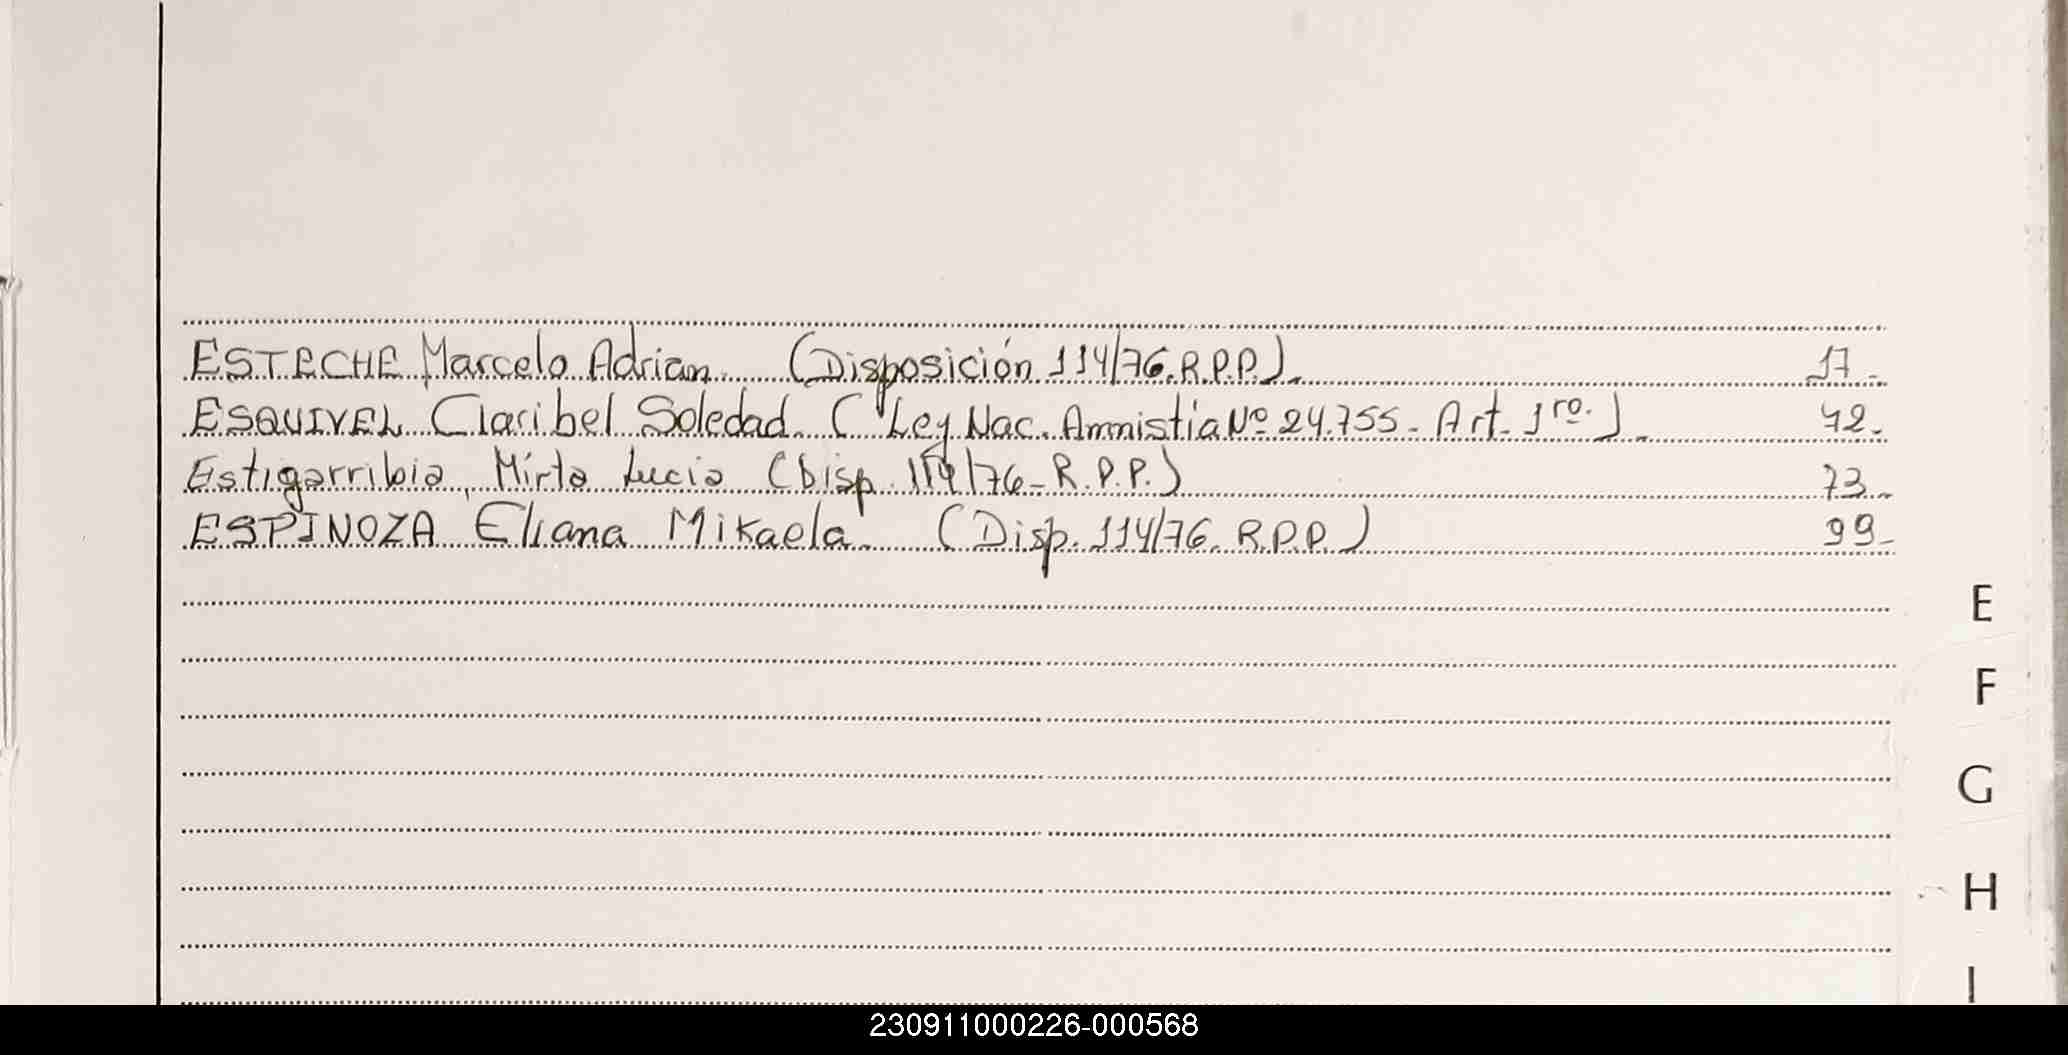 ESTECHE Marcelo Adrian (Disposición 114/76.R.P.P.). 17.
ESQUIVEL Claribel Soledad. (Ley Nac. Amnistía Nº 24.755- Art. 1ro.). 42.
Estigarribia, Mirta Lucia (Disp. 114/76- R.P.P.) 73.
ESPINOZA Eliana Mikaela (Disp. 114/76. R.P.P.) 99-
E
F
G
H
I
230911000226-000568